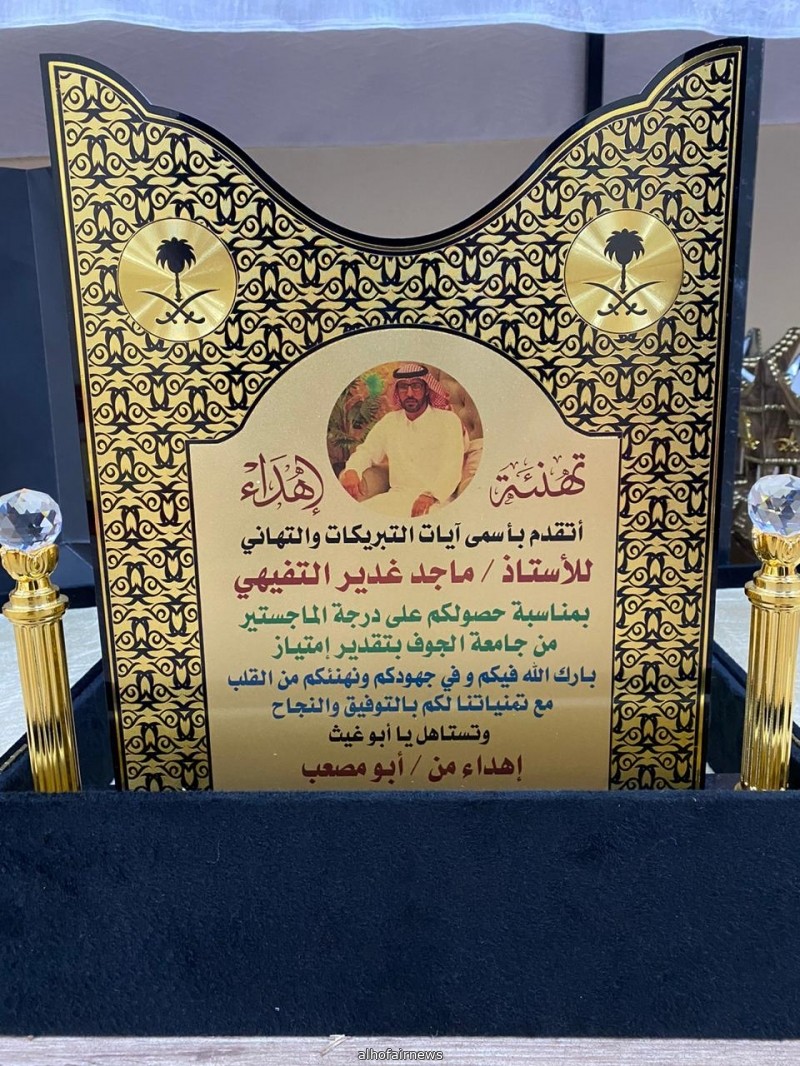 تهنئة
إهداء
أتقدم بأسمى آيات التبريكات والتهاني
للأستاذ / ماجد غدير التفيهي
بمناسبة حصولكم على درجة الماجستير
من جامعة الجوف بتقدير إمتياز
بارك الله فيكم و في جهودكم ونهنئكم من القلب
مع تمنياتنا لكم بالتوفيق والنجاح
وتستاهل يا أبو غيث
إهداء من / أبو مصعب
alhofairnews